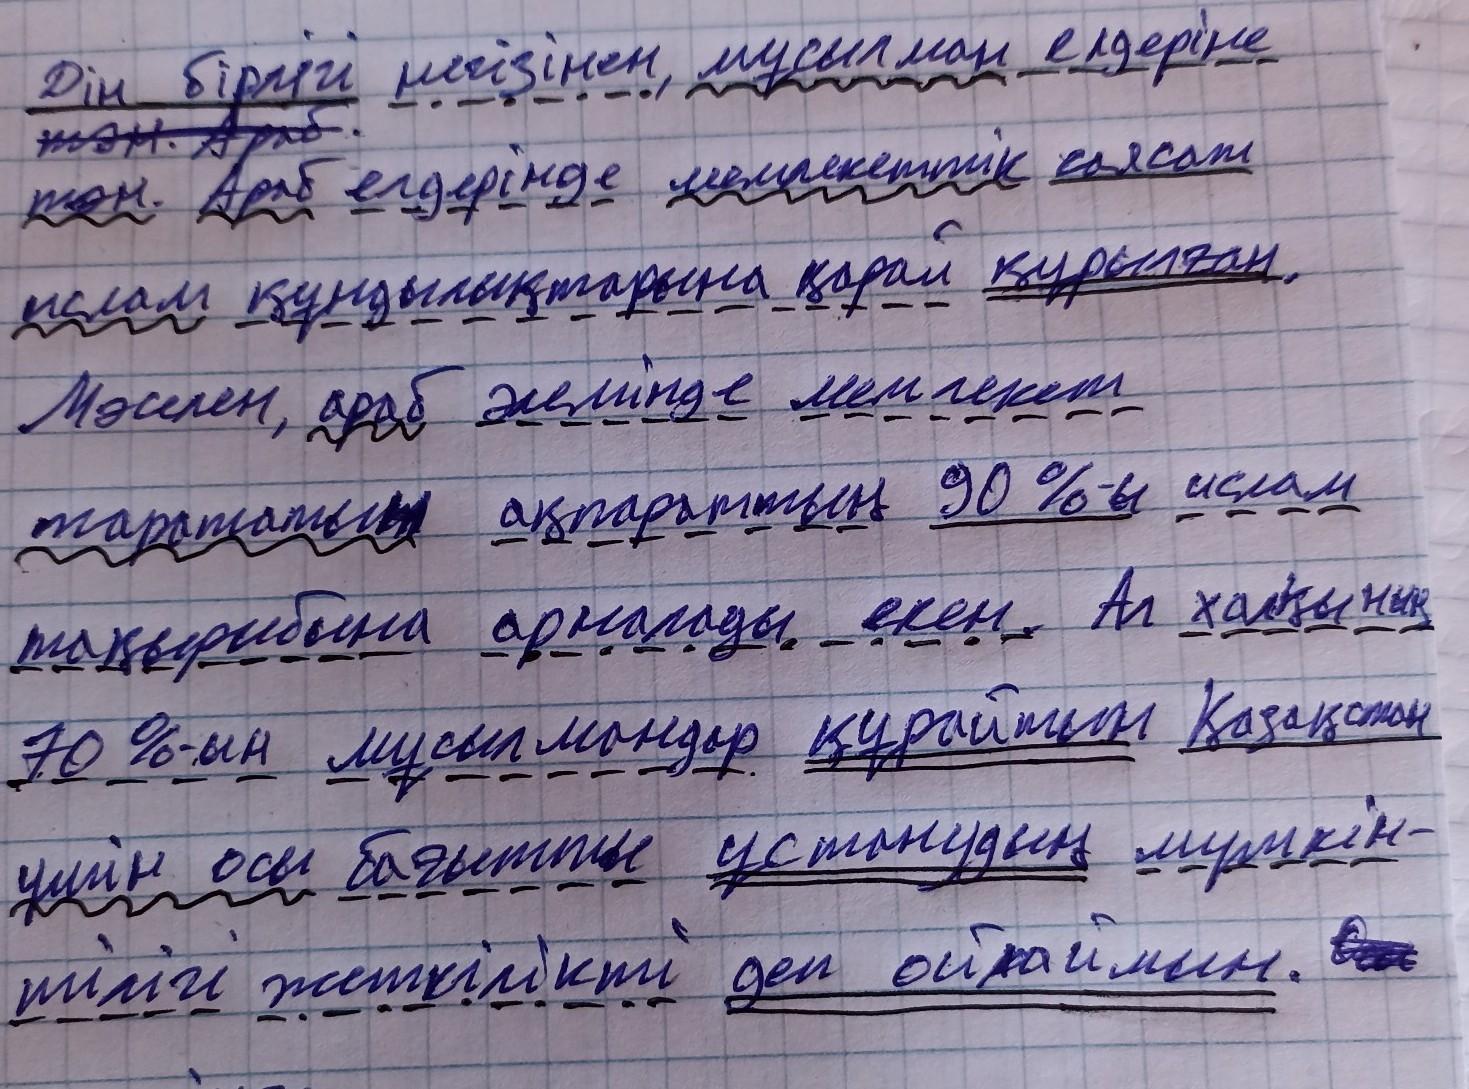 Дін бірлігі негізінен, мұсылман елдеріне
тән. Араб.
тән. Араб елдерінде мемлекеттік саясат
ислам құндылықтарына қарай құрылған.
Мәселен, араб әлемінде мемлекет
тарататын ақпараттың 90 %-ы ислам
тақырыбына арналады екен. Ал халқының
70 %-ын мұсылмандар құрайтын Қазақстан
үшін осы бағытты ұстанудың мүмкін-
шілігі жеткілікті деп ойлаймын.